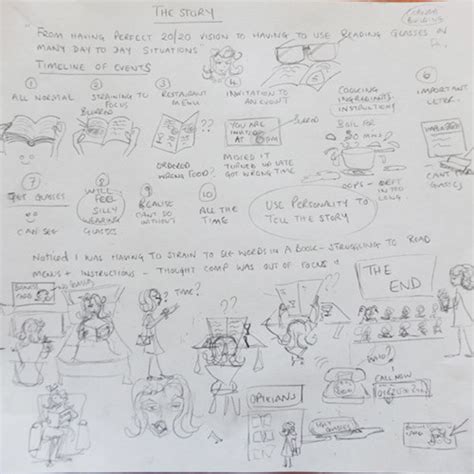 THE STORY
"FROM HAVING PERFECT 20/20 VISION TO HAVING TO USE READING GLASSES IN
MANY DAY TO DAY SITUATIONS"
TIMELINE OF EVENTS
1
ALL NORMAL
2
STRAINING TO
FOCUS
BLURRED
3
RESTAURANT
MENU
??
ORDERED
WRONG FOOD?
INVITATION TO
AN EVENT
YOU ARE
AT
BLURRED
MISREAD IT
TURNED UP LATE
GOT WRONG TIME
COOKING
INGREDIENTS
BOIL FOR
MINS?
OOPS - LEFT
IN TOO
LONG
6
IMPORTANT
LETTER.
7
GLASSES
CAN SEE
8
WILL
FEEL
SILLY
WEARING
GLASSES
9
CAN'T DO
WITHOUT
10
ALL THE
TIME
USE PERSONALITY TO
TELL THE STORY
NOTICED I WAS HAVING TO STRAIN TO SEE WORDS IN A BOOK - STRUGGLING TO READ
MENUS + INSTRUCTIONS - THOUGHT COMP WAS OUT OF FOCUS!!
??
??
THE
END
CALL NOW
OPTICIANS